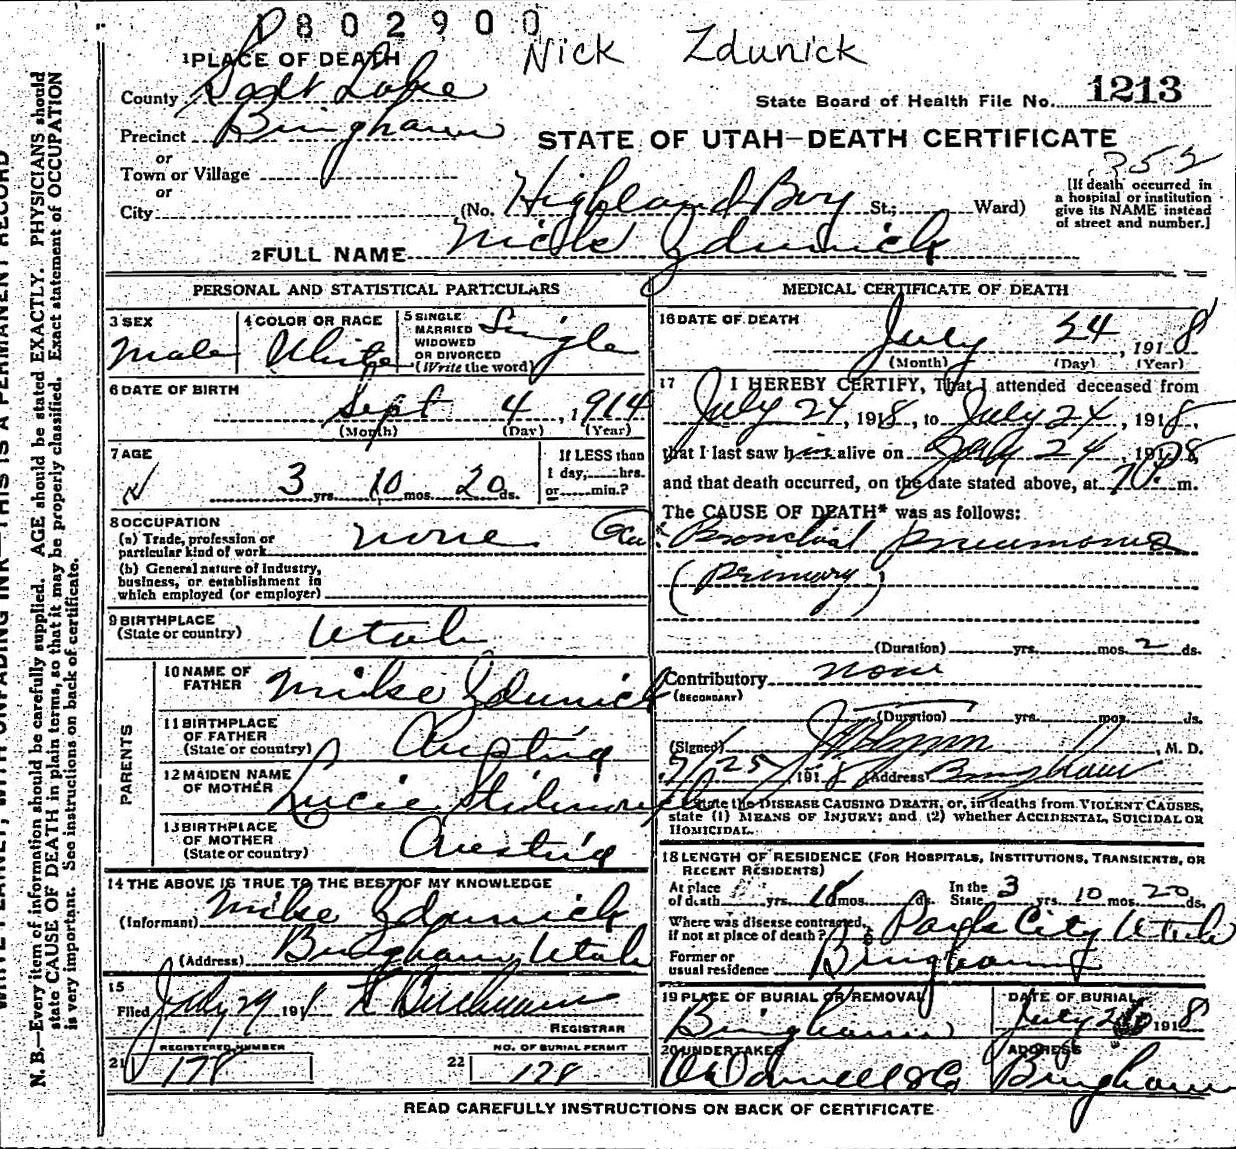 1802900
Nick Zdunick
1 PLACE OF DEATH
County Salt Lake
State Board of Health File No. 1213
Precinct Bingham
STATE OF UTAH—DEATH CERTIFICATE
or
Town or Village
352
or
City
(No. Highland Boy St.; Ward)
[If death occurred in
a hospital or institution
give its NAME instead
of street and number.]
2 FULL NAME Nick Zdunick
PERSONAL AND STATISTICAL PARTICULARS
3 SEX
Male
4 COLOR OR RACE
White
5 SINGLE
MARRIED
WIDOWED
OR DIVORCED
(Write the word)
Single
6 DATE OF BIRTH
Sept 4, 1914
(Month) (Day) (Year)
7 AGE
3 yrs. 10 mos. 20 ds.
If LESS than
1 day, hrs.
or min.?
8 OCCUPATION
(a) Trade, profession or
particular kind of work none
(b) General nature of industry,
business, or establishment in
which employed (or employer)
9 BIRTHPLACE
(State or country) Utah
PARENTS
10 NAME OF
FATHER Mike Zdunick
11 BIRTHPLACE
OF FATHER
(State or country) Austria
12 MAIDEN NAME
OF MOTHER Lucie
13 BIRTHPLACE
OF MOTHER
(State or country) Austria
14 THE ABOVE IS TRUE TO THE BEST OF MY KNOWLEDGE
(Informant) Mike Zdunick
(Address) Bingham, Utah
15
Filed July 29 191
REGISTRAR
21 REGISTERED NUMBER
178
22 NO. OF BURIAL PERMIT
178
MEDICAL CERTIFICATE OF DEATH
16 DATE OF DEATH
July 24, 1918
(Month) (Day) (Year)
17 I HEREBY CERTIFY, That I attended deceased from
July 24, 1918, to July 24, 1918,
that I last saw him alive on July 24, 1918,
and that death occurred, on the date stated above, at 7 P. m.
The CAUSE OF DEATH* was as follows:
Bronchial pneumonia
(Primary)
(Duration) yrs. mos. 2 ds.
Contributory none
(SECONDARY)
(Duration) yrs. mos. ds.
(Signed) , M. D.
7/25, 1918 (Address) Bingham
*State the DISEASE CAUSING DEATH, or, in deaths from VIOLENT CAUSES,
state (1) MEANS OF INJURY; and (2) whether ACCIDENTAL, SUICIDAL OR
HOMICIDAL.
18 LENGTH OF RESIDENCE (FOR HOSPITALS, INSTITUTIONS, TRANSIENTS, OR
RECENT RESIDENTS)
At place
of death yrs. 18 mos. ds. In the
State 3 yrs. 10 mos. 20 ds.
Where was disease contracted,
if not at place of death? Park City Utah
Former or
usual residence Bingham
19 PLACE OF BURIAL OR REMOVAL
Bingham
DATE OF BURIAL
July 26 1918
20 UNDERTAKER
O'Donnell & Co
ADDRESS
Bingham
READ CAREFULLY INSTRUCTIONS ON BACK OF CERTIFICATE
WRITE PLAINLY, WITH UNFADING INK—THIS IS A PERMANENT RECORD
N. B.—Every item of information should be carefully supplied. AGE should be stated EXACTLY. PHYSICIANS should
state CAUSE OF DEATH in plain terms, so that it may be properly classified. Exact statement of OCCUPATION
is very important. See instructions on back of certificate.